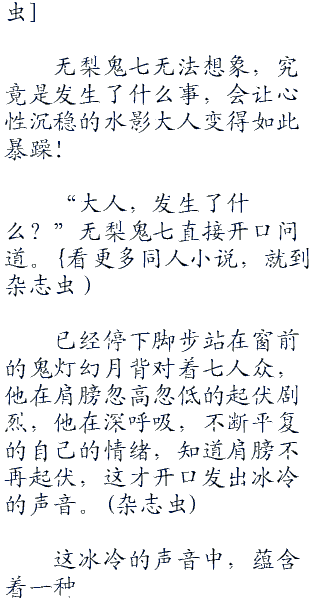 虫]
无梨鬼七无法想象，究
竟是发生了什么事，会让心
性沉稳的水影大人变得如此
暴躁！
“大人，发生了什
么？”无梨鬼七直接开口问
道。{看更多同人小说，就到
杂志虫 )
已经停下脚步站在窗前
的鬼灯幻月背对着七人众，
他在肩膀忽高忽低的起伏剧
烈，他在深呼吸，不断平复
的自己的情绪，知道肩膀不
再起伏，这才开口发出冰冷
的声音。(杂志虫)
这冰冷的声音中，蕴含
着一种